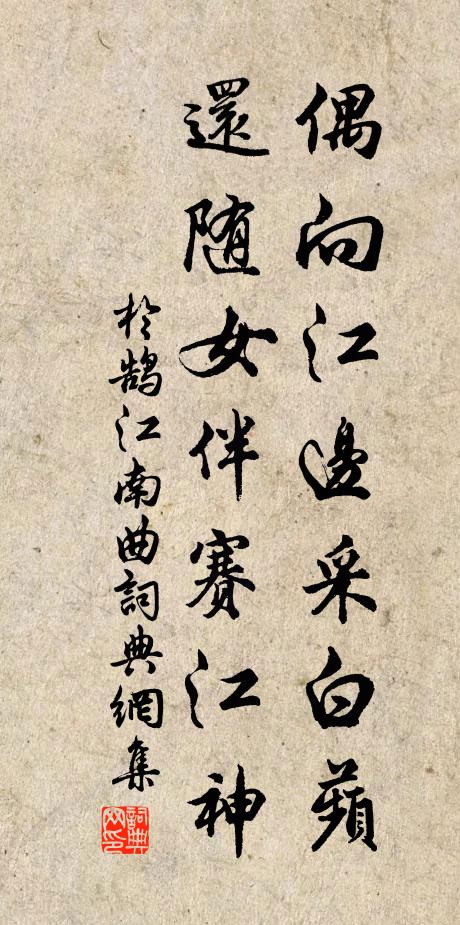 偶向江邊采白蘋
還随女伴賽江神
於鵠江南曲詞典網集
詞典网印